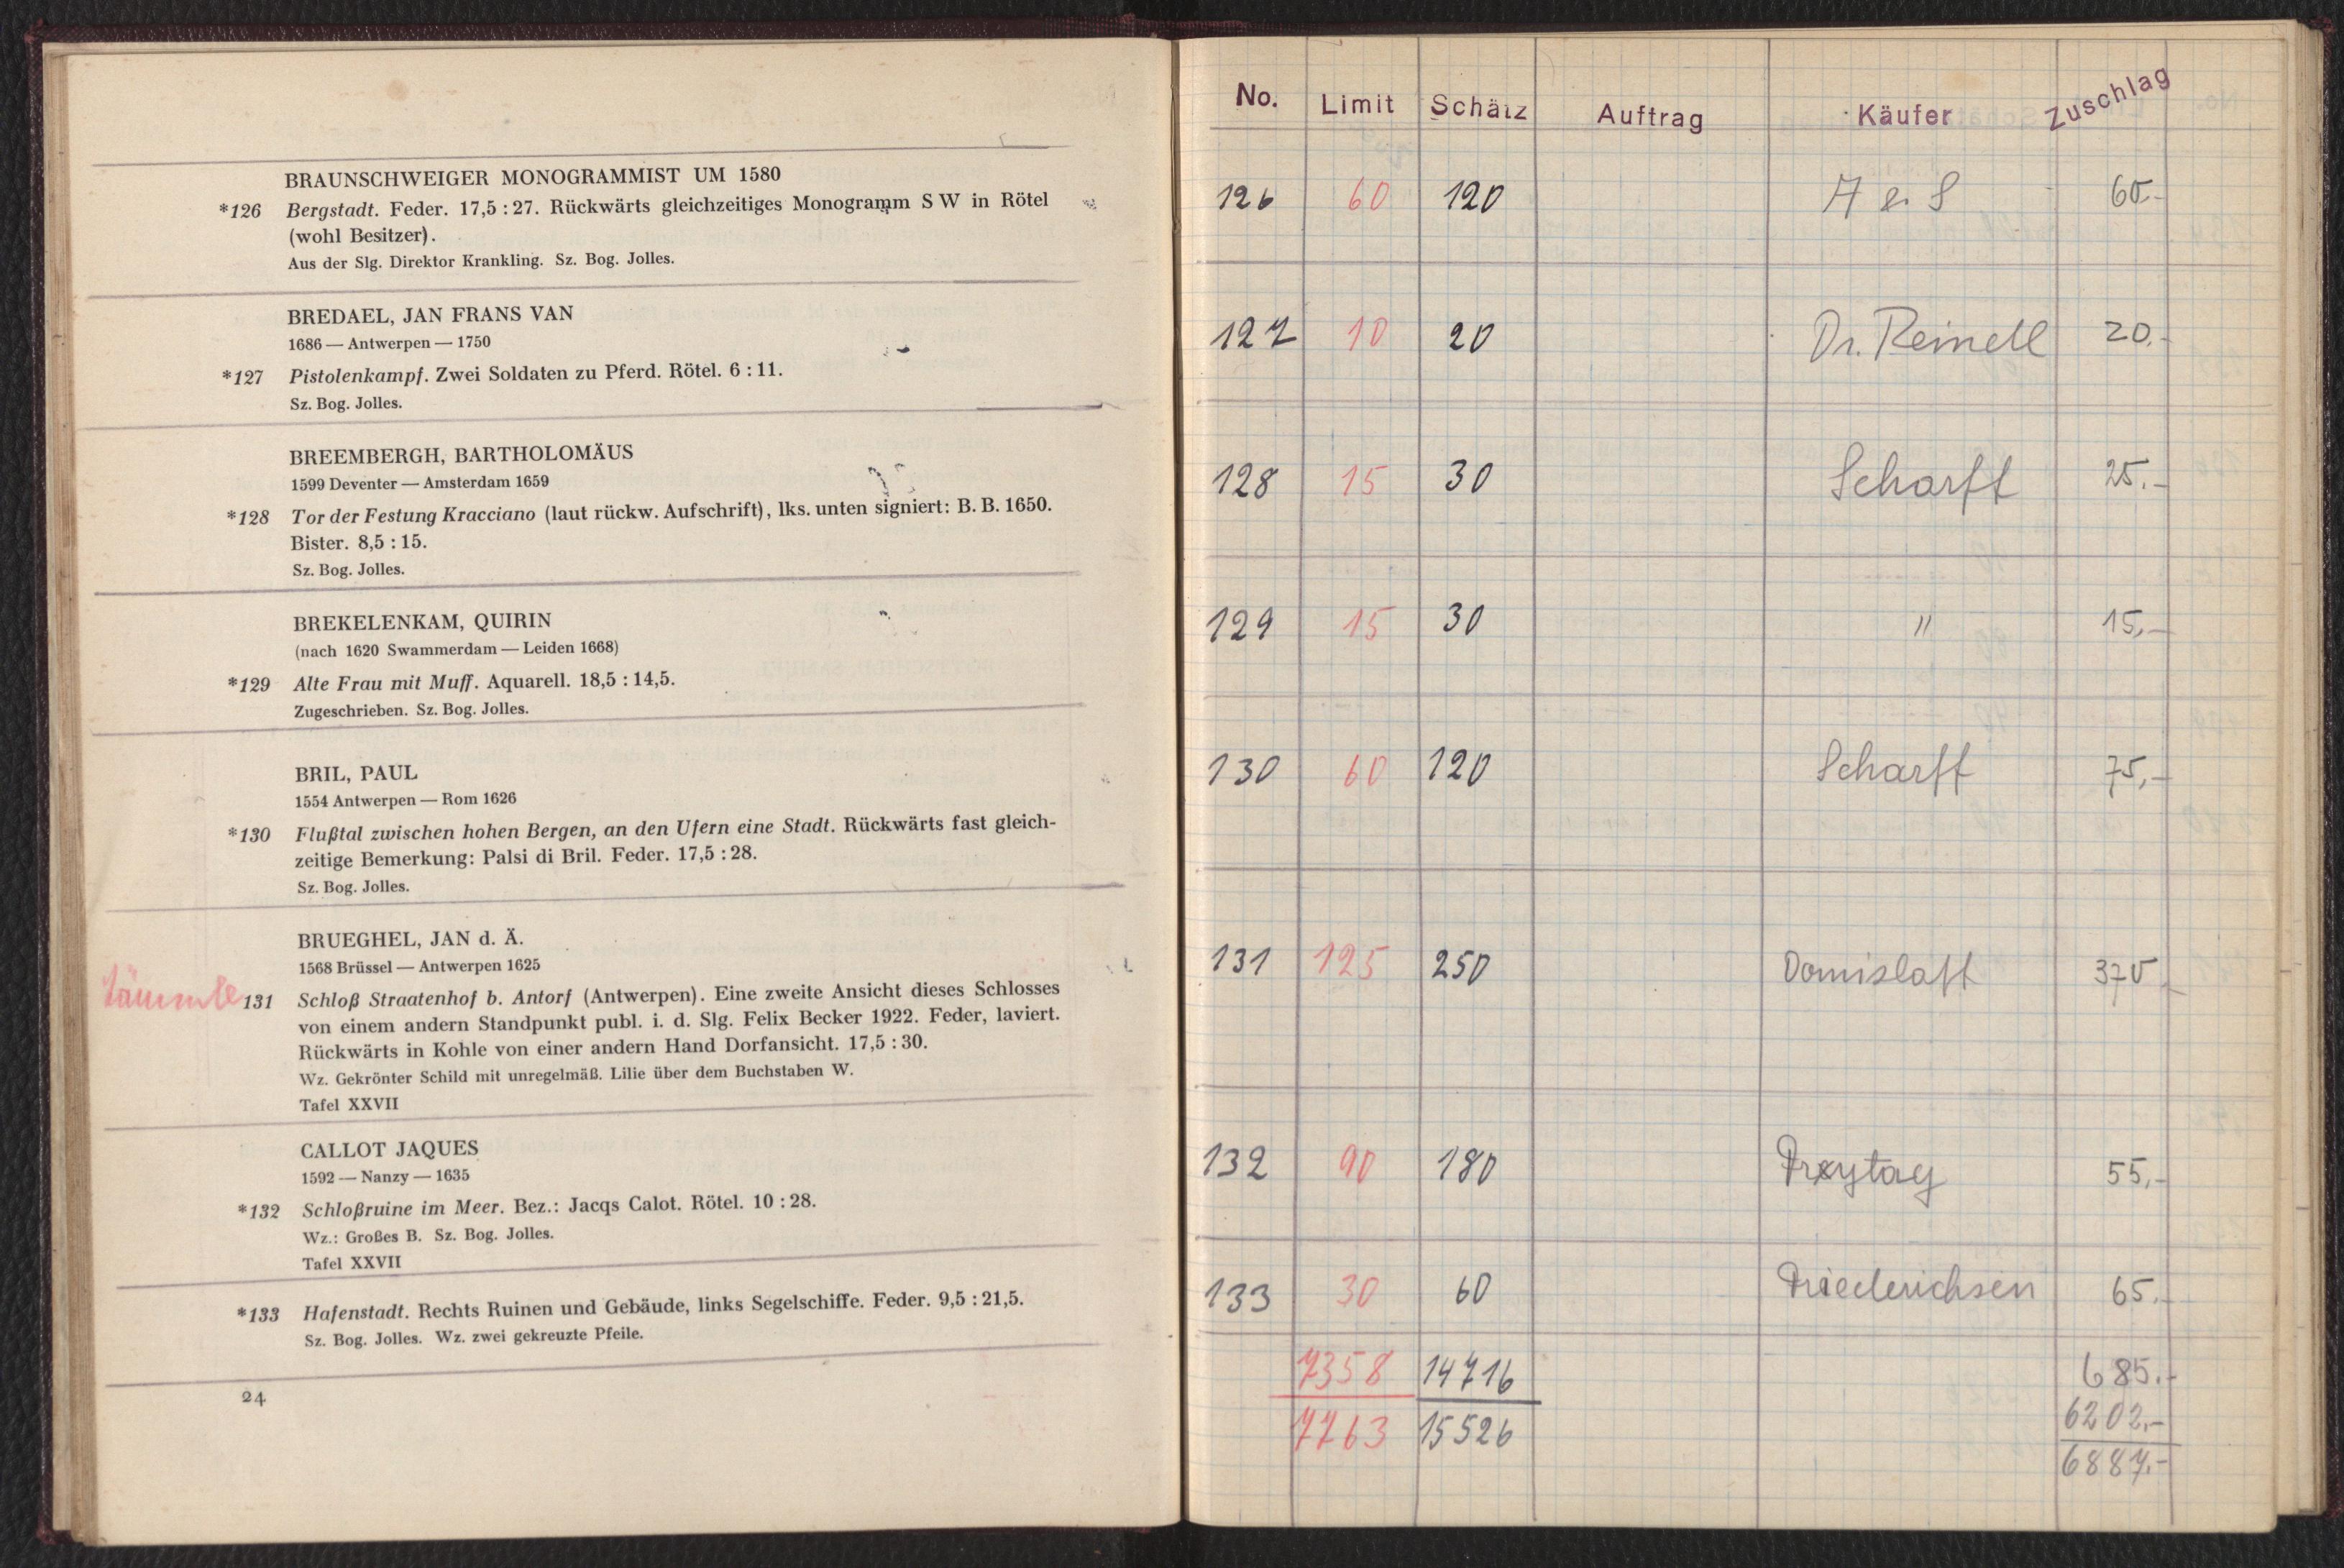 BRAUNSCHWEIGER MONOGRAMMIST UM 1580
*126 Bergstadt. Feder. 17,5 : 27. Rückwärts gleichzeitiges Monogramm S W in Rötel
(wohl Besitzer).
Aus der Slg. Direktor Krankling. Sz. Bog. Jolles.
BREDAEL, JAN FRANS VAN
1686 — Antwerpen — 1750
*127 Pistolenkampf. Zwei Soldaten zu Pferd. Rötel. 6 : 11.
Sz. Bog. Jolles.
BREEMBERGH, BARTHOLOMÄUS
1599 Deventer — Amsterdam 1659
*128 Tor der Festung Kracciano (laut rückw. Aufschrift), lks. unten signiert: B. B. 1650.
Bister. 8,5 : 15.
Sz. Bog. Jolles.
BREKELENKAM, QUIRIN
(nach 1620 Swammerdam — Leiden 1668)
*129 Alte Frau mit Muff. Aquarell. 18,5 : 14,5.
Zugeschrieben. Sz. Bog. Jolles.
BRIL, PAUL
1554 Antwerpen — Rom 1626
*130 Flußtal zwischen hohen Bergen, an den Ufern eine Stadt. Rückwärts fast gleich-
zeitige Bemerkung: Palsi di Bril. Feder. 17,5 : 28.
Sz. Bog. Jolles.
BRUEGHEL, JAN d. Ä.
1568 Brüssel — Antwerpen 1625
131 Schloß Straatenhof b. Antorf (Antwerpen). Eine zweite Ansicht dieses Schlosses
von einem andern Standpunkt publ. i. d. Slg. Felix Becker 1922. Feder, laviert.
Rückwärts in Kohle von einer andern Hand Dorfansicht. 17,5 : 30.
Wz. Gekrönter Schild mit unregelmäß. Lilie über dem Buchstaben W.
Tafel XXVII
CALLOT JAQUES
1592 — Nanzy — 1635
*132 Schloßruine im Meer. Bez.: Jacqs Calot. Rötel. 10 : 28.
Wz.: Großes B. Sz. Bog. Jolles.
Tafel XXVII
*133 Hafenstadt. Rechts Ruinen und Gebäude, links Segelschiffe. Feder. 9,5 : 21,5.
Sz. Bog. Jolles. Wz. zwei gekreuzte Pfeile.
24
No. Limit Schätz Auftrag Käufer Zuschlag
126 60 120 60.-
127 10 20 Dr. Reindl 20.-
128 15 30 Scharff 25.-
129 15 30 " 15,-
130 60 120 Scharff 75,-
131 125 250 Domislaff 370.-
132 90 180 Freytag 55,-
133 30 60 Friederichsen 65.-
7358 14716 685.-
7763 15526 6202,-
6887.-